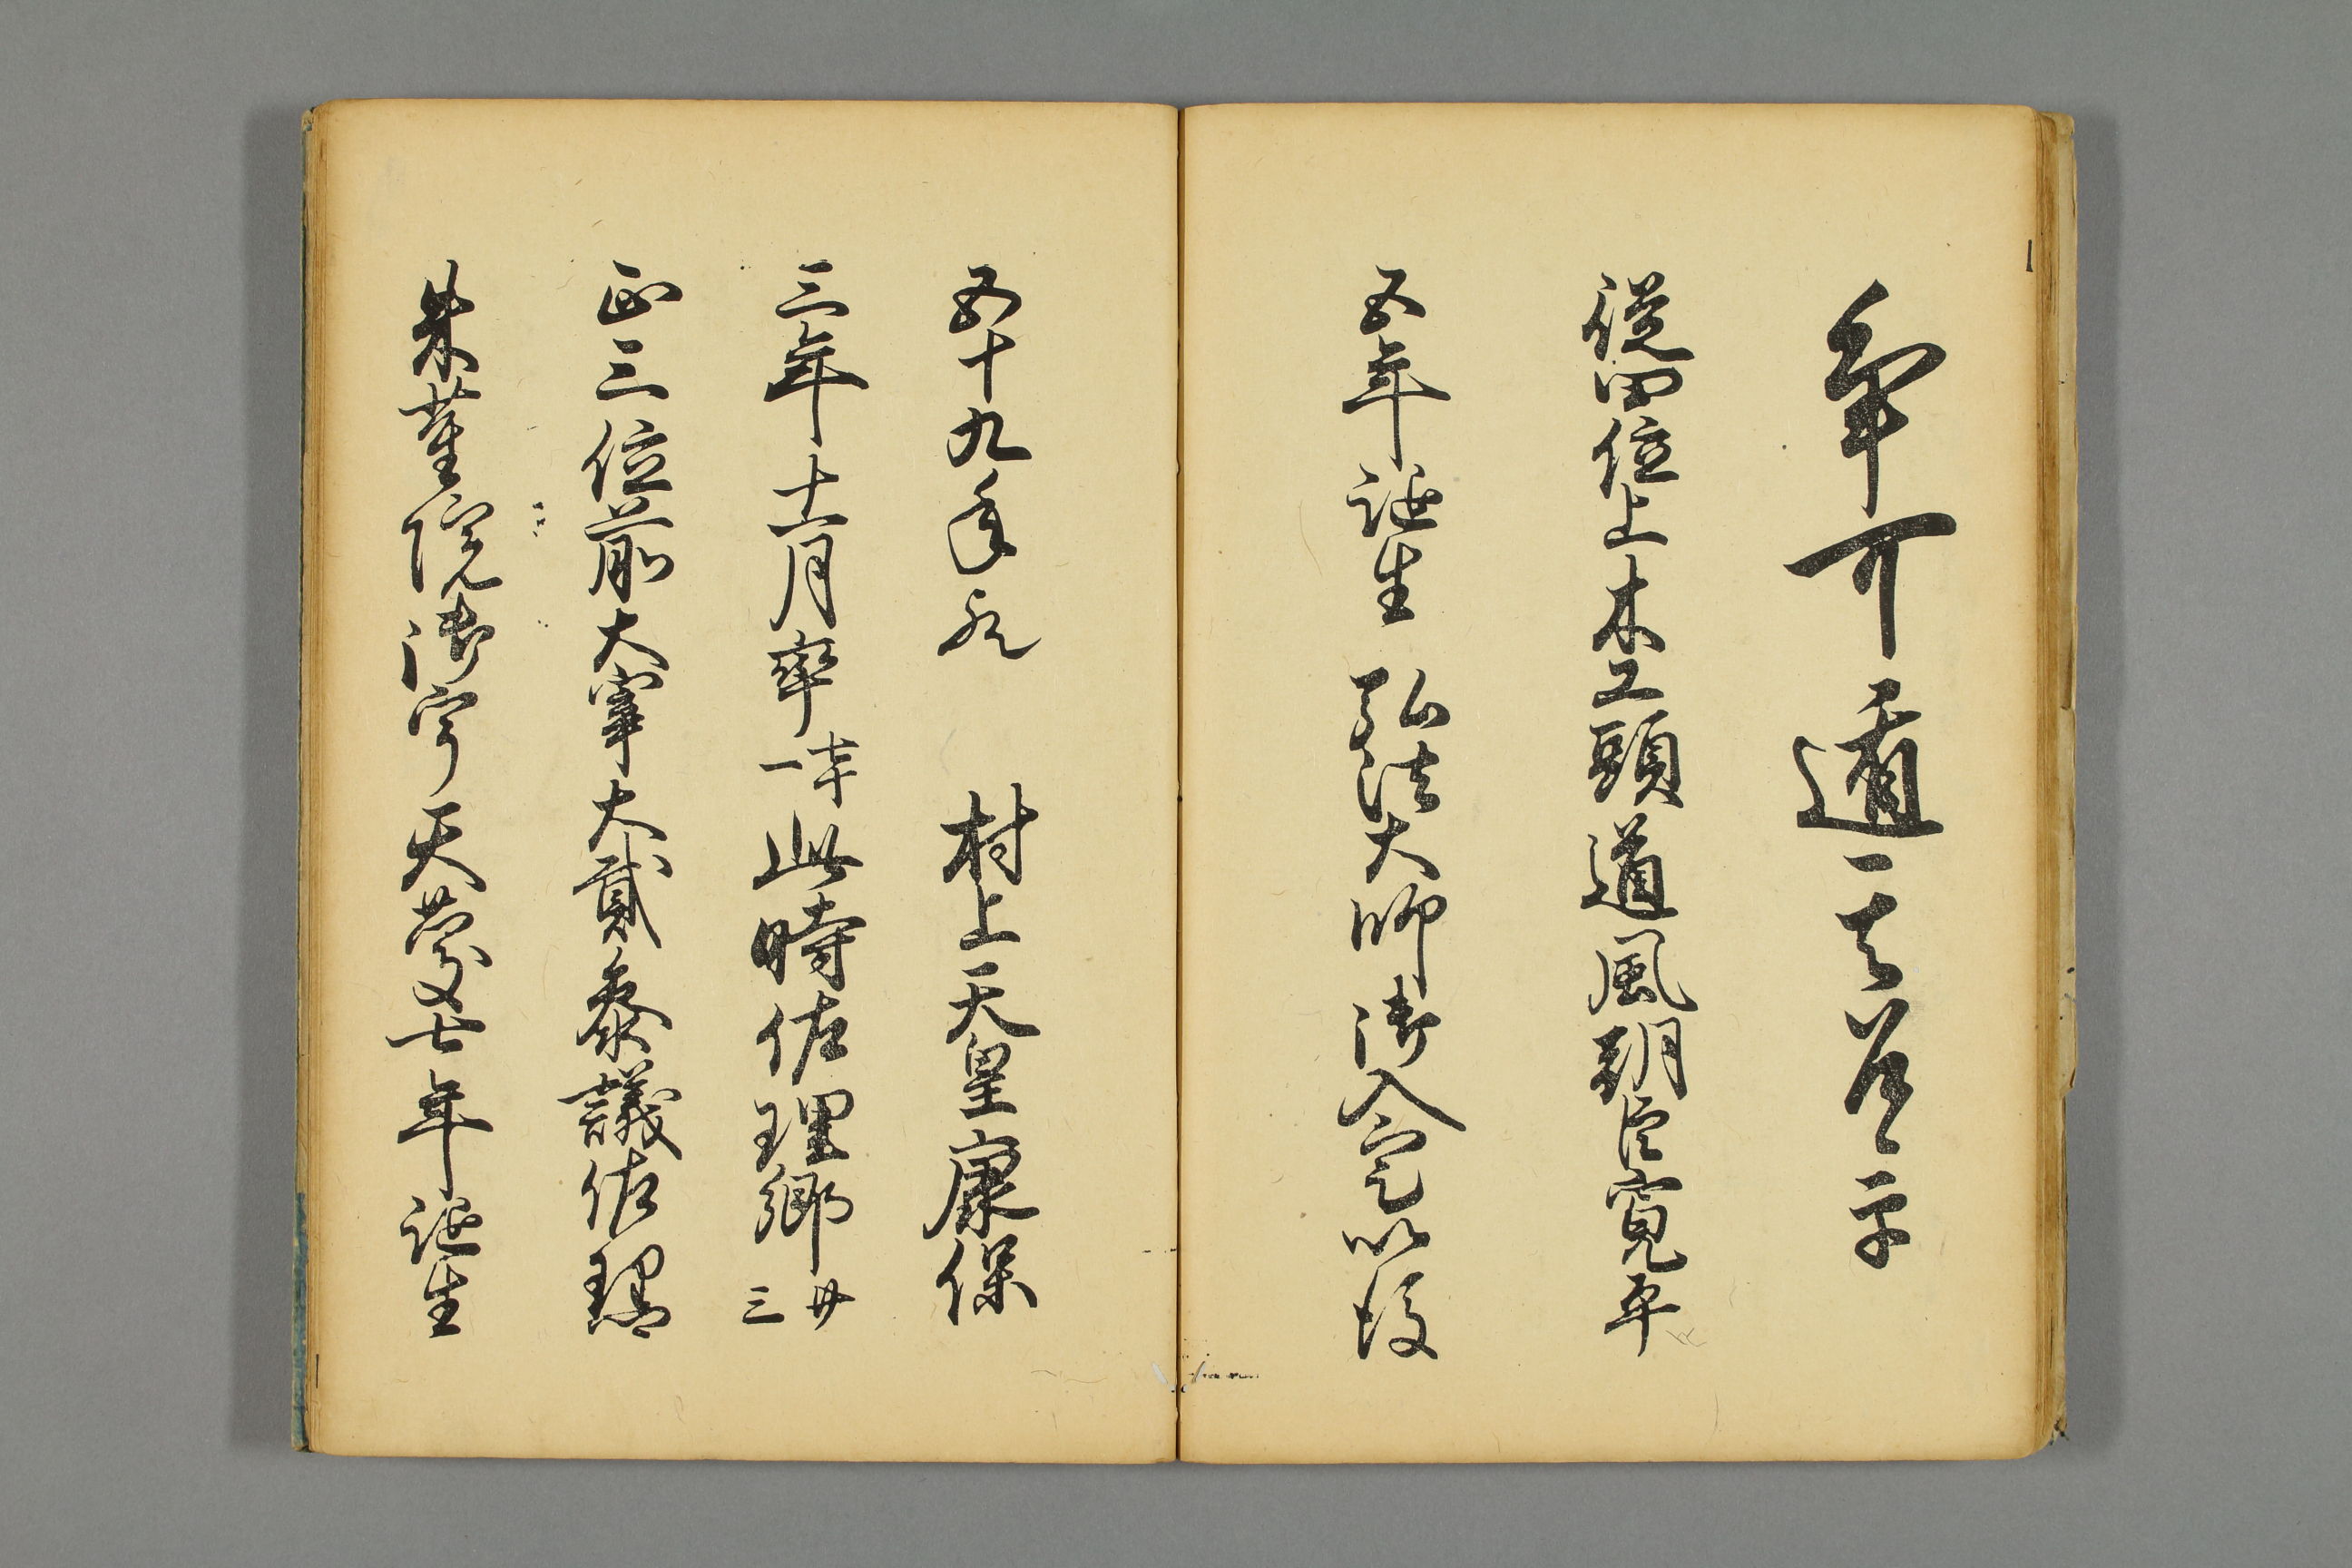 従四位上木工頭道風朝臣寛平
五年誕生 弘法大師御入定以後
五十九年也 村上天皇康保
三年十二月卒七十一此時佐理卿廿三
正三位前大宰大貳参議佐理
朱雀院御宇天慶七年誕生